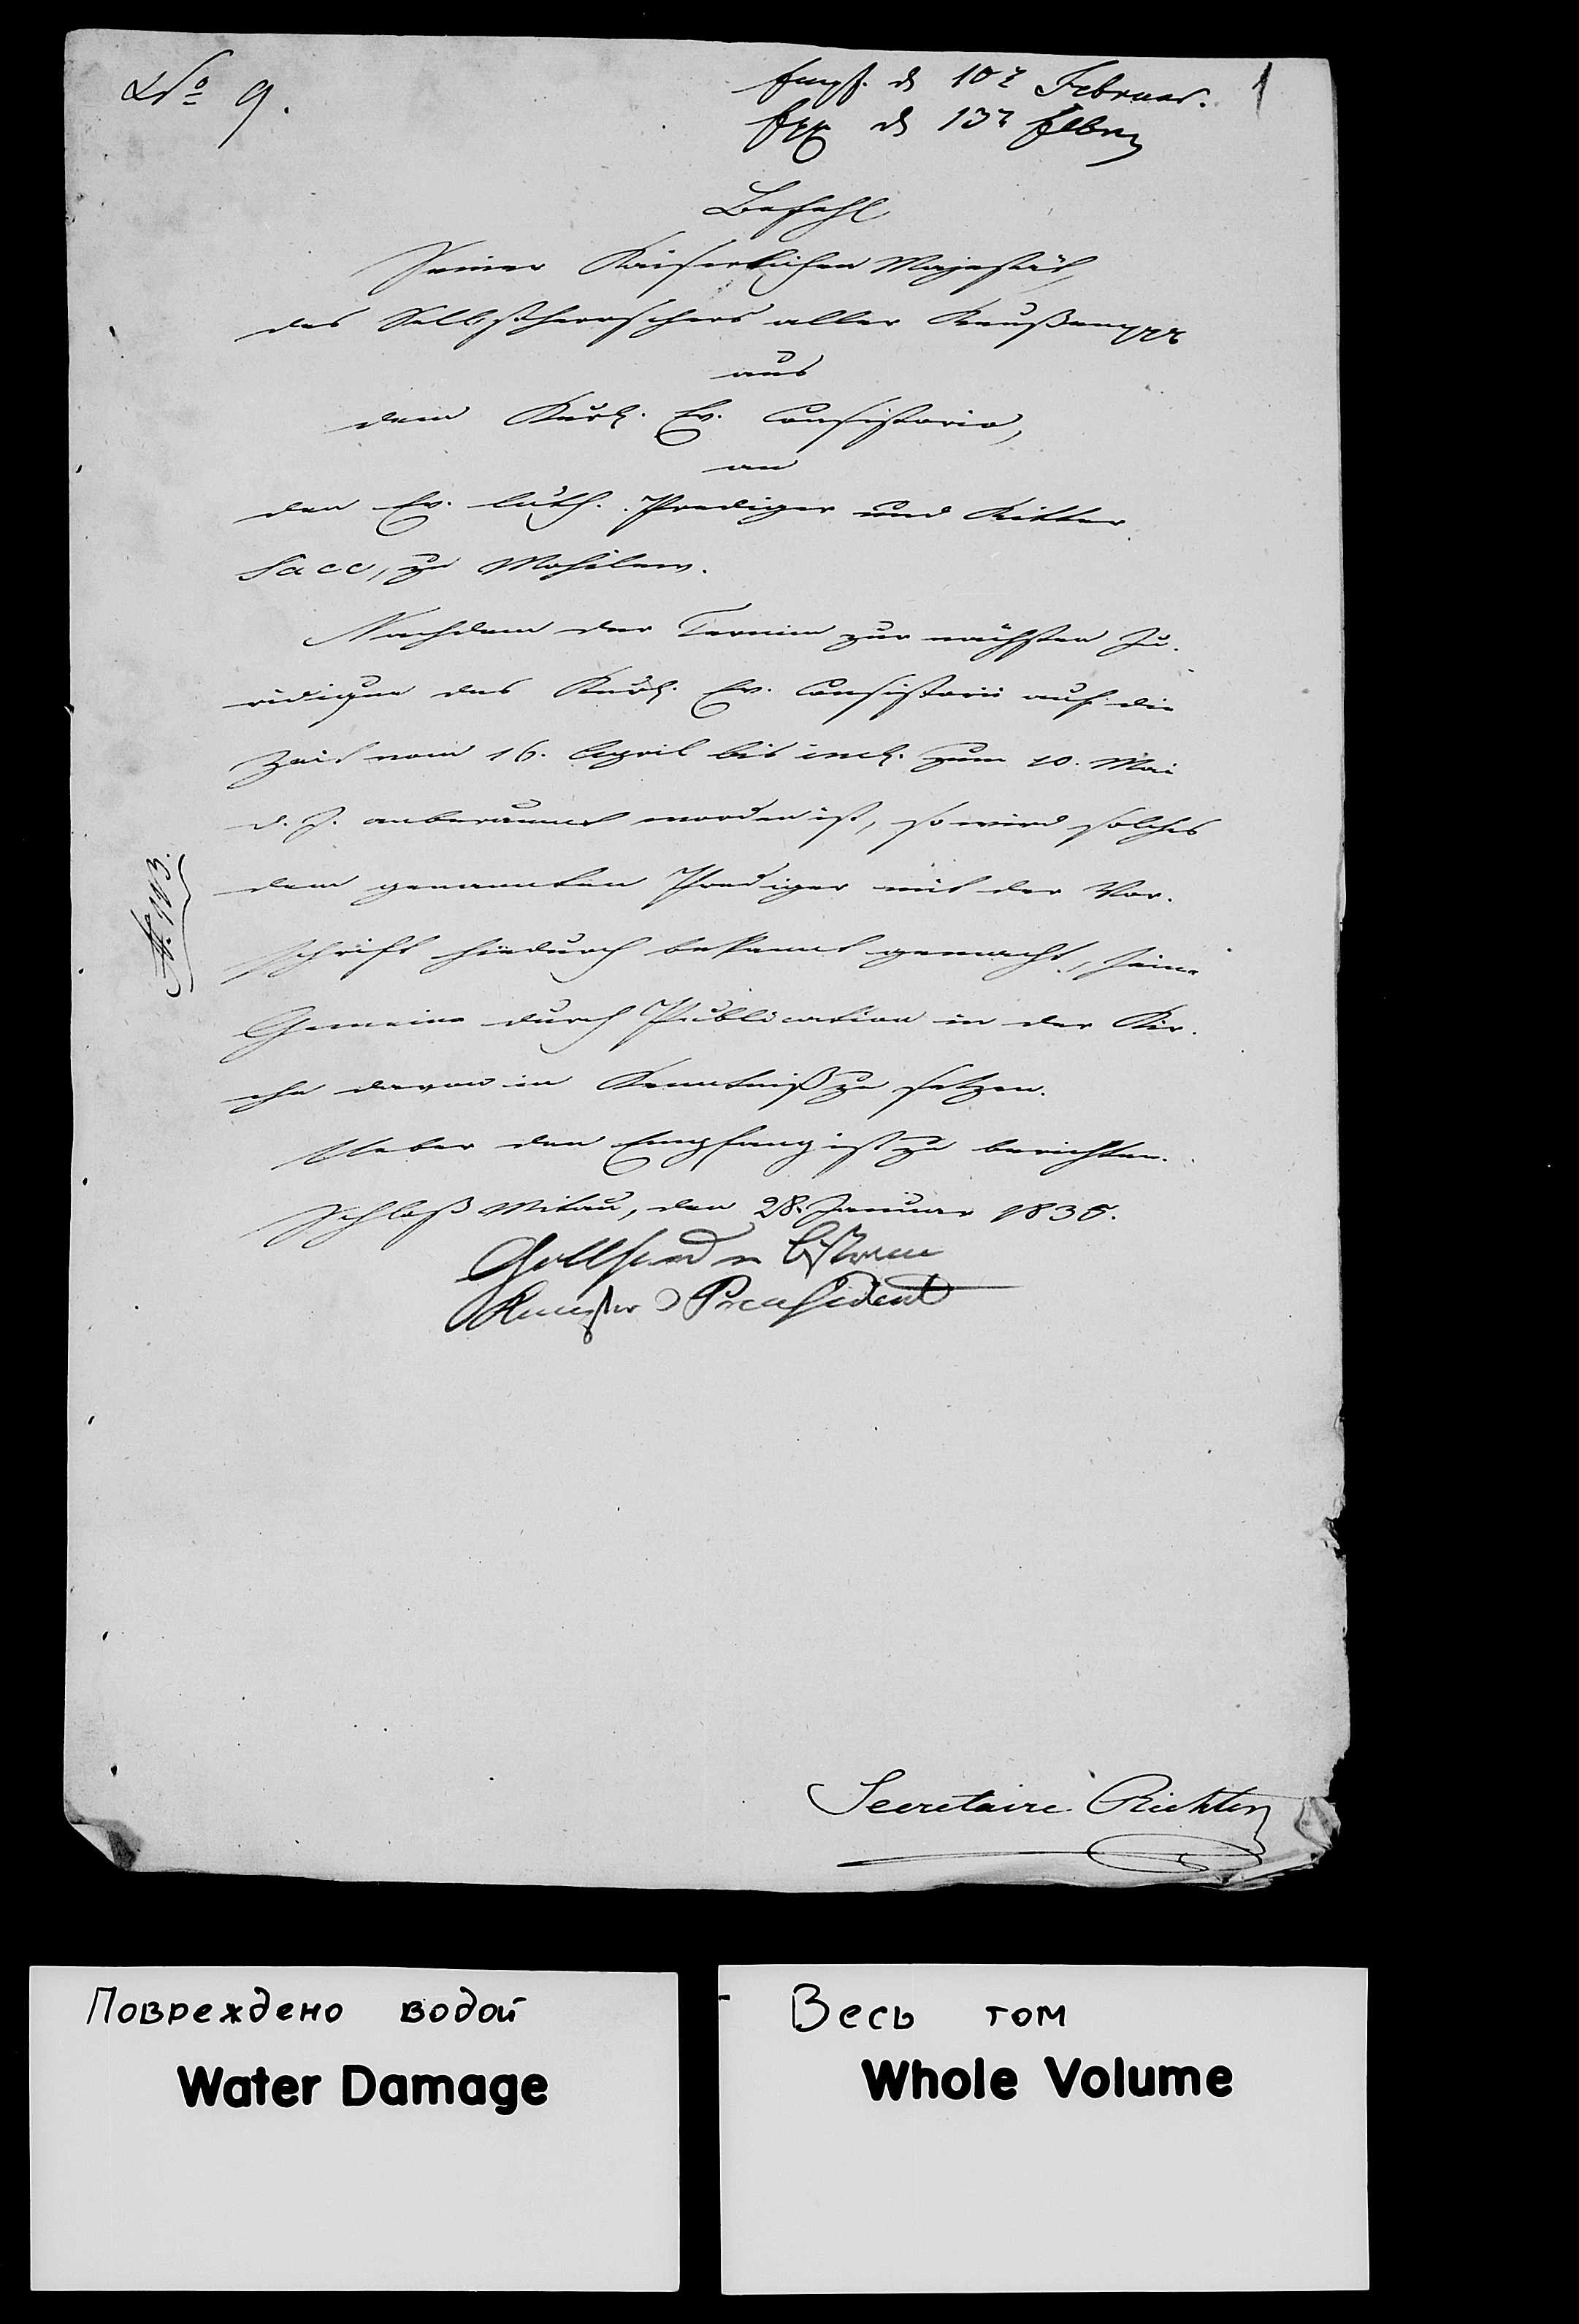 No 9.
Empf. d 10t Februar. 1
Exp d 13t Febr
Befehl
Seiner Kaiserlichen Majestät,
des Selbstherrschers aller Reußen
aus
dem Kurl. Ev. Consistorio,
an
den Ev. luth. Prediger und Ritter
Sacc, zu Mohilew.
Nachdem der Termin zur nächsten Ju-
ridique des Kurl. Ev. Consistorii auf die
Zeit vom 16. April bis incl. zum 10. Mai
d. J. anberaumt worden ist, so wird solches
dem genannten Prediger mit der Vor-
schrift hiedurch bekannt gemacht, seine
Gemeine durch Publication in der Kir-
che davon in Kenntniß zu setzen.
Ueber den Empfang ist zu berichten.
Schloß Mitau, den 28. Januar 1835.
Kanzler Praesident
Secretaire Richter
Повреждено водой
Water Damage
Весь том
Whole Volume